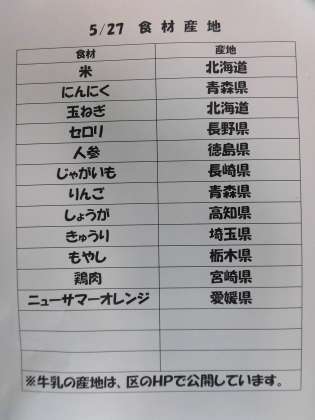 5/27 食材産地
食材 産地
米 北海道
にんにく 青森県
玉ねぎ 北海道
セロリ 長野県
人参 徳島県
じゃがいも 長崎県
りんご 青森県
しょうが 高知県
きゅうり 埼玉県
もやし 栃木県
鶏肉 宮崎県
ニューサマーオレンジ 愛媛県
※牛乳の産地は、区のHPで公開しています。